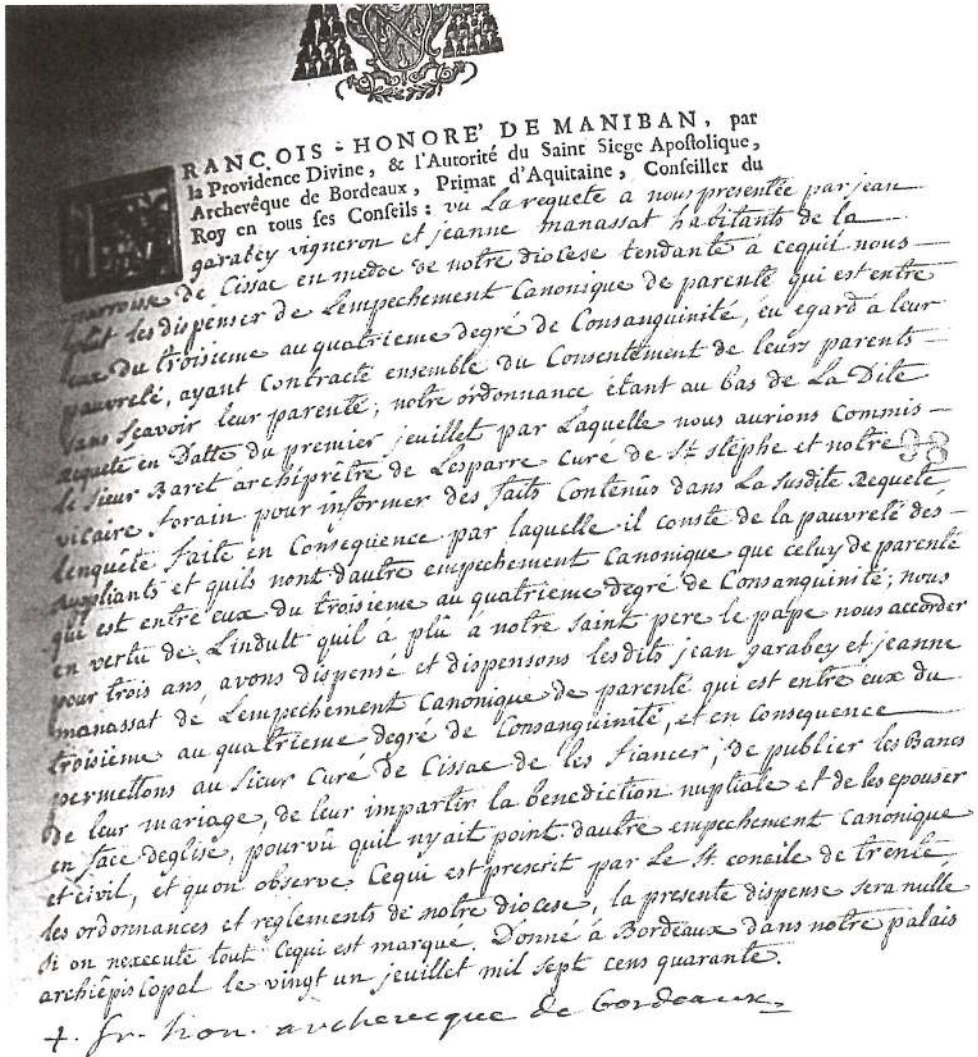 FRANÇOIS-HONORE' DE MANIBAN, par
la Providence Divine, & l'Autorité du Saint Siege Apostolique,
Archevêque de Bordeaux, Primat d'Aquitaine, Conseiller du
Roy en tous ses Conseils : vu La requete a nous presentée par jean
garabey vigneron et jeanne manassat habitants de la
parroisse de Cissac en medoc de notre diocese tendante à cequil nous
plut les dispenser de Lempechement Canonique de parenté qui est entre
eux du troisieme au quatrieme degré de Consanguinité, eu egard a leur
pauvreté, ayant contracté ensemble du Consentement de leurs parents
sans sçavoir leur parenté; notre órdonnance étant au bas de La Dite
Requete en Datte du premier jeuillet par Laquelle nous aurions Commis
le Sieur Baret archiprêtre de Lesparre Curé de St stéphe et notre
vicaire forain pour informer des faits Contenûs dans La susdite Requete
Lenquête faite en Consequence par laquelle il conste de la pauvreté des
suppliants et quils nont dautre empechement canonique que celuy de parenté
qui est entre eux du troisieme au quatrieme degré de Consanguinité; nous
en vertu de Lindult quil à plû à notre saint pere le pape nous accorder
pour trois ans, avons dispensé et dispensons lesdits jean garabey et jeanne
manassat de Lempechement Canonique de parenté qui est entre eux du
troisieme au quatrieme degré de Consanguinité, et en consequence
permettons au sieur Curé de Cissac de les fiancer, de publier les Bancs
de leur mariage, de leur impartir la benediction nuptiale et de les epouser
en face deglise, pourvû quil nyait point dautre empechement canonique
et civil, et quon observe Cequi est prescrit par Le St concile de trente
les ordonnances et reglements de notre diocese, la presente dispense sera nulle
si on nexecute tout Cequi est marqué. Donné à Bordeaux dans notre palais
archiépiscopal le vingt un jeuillet mil sept cens quarante.
+. fr. hon. archevecque de bordeaux.